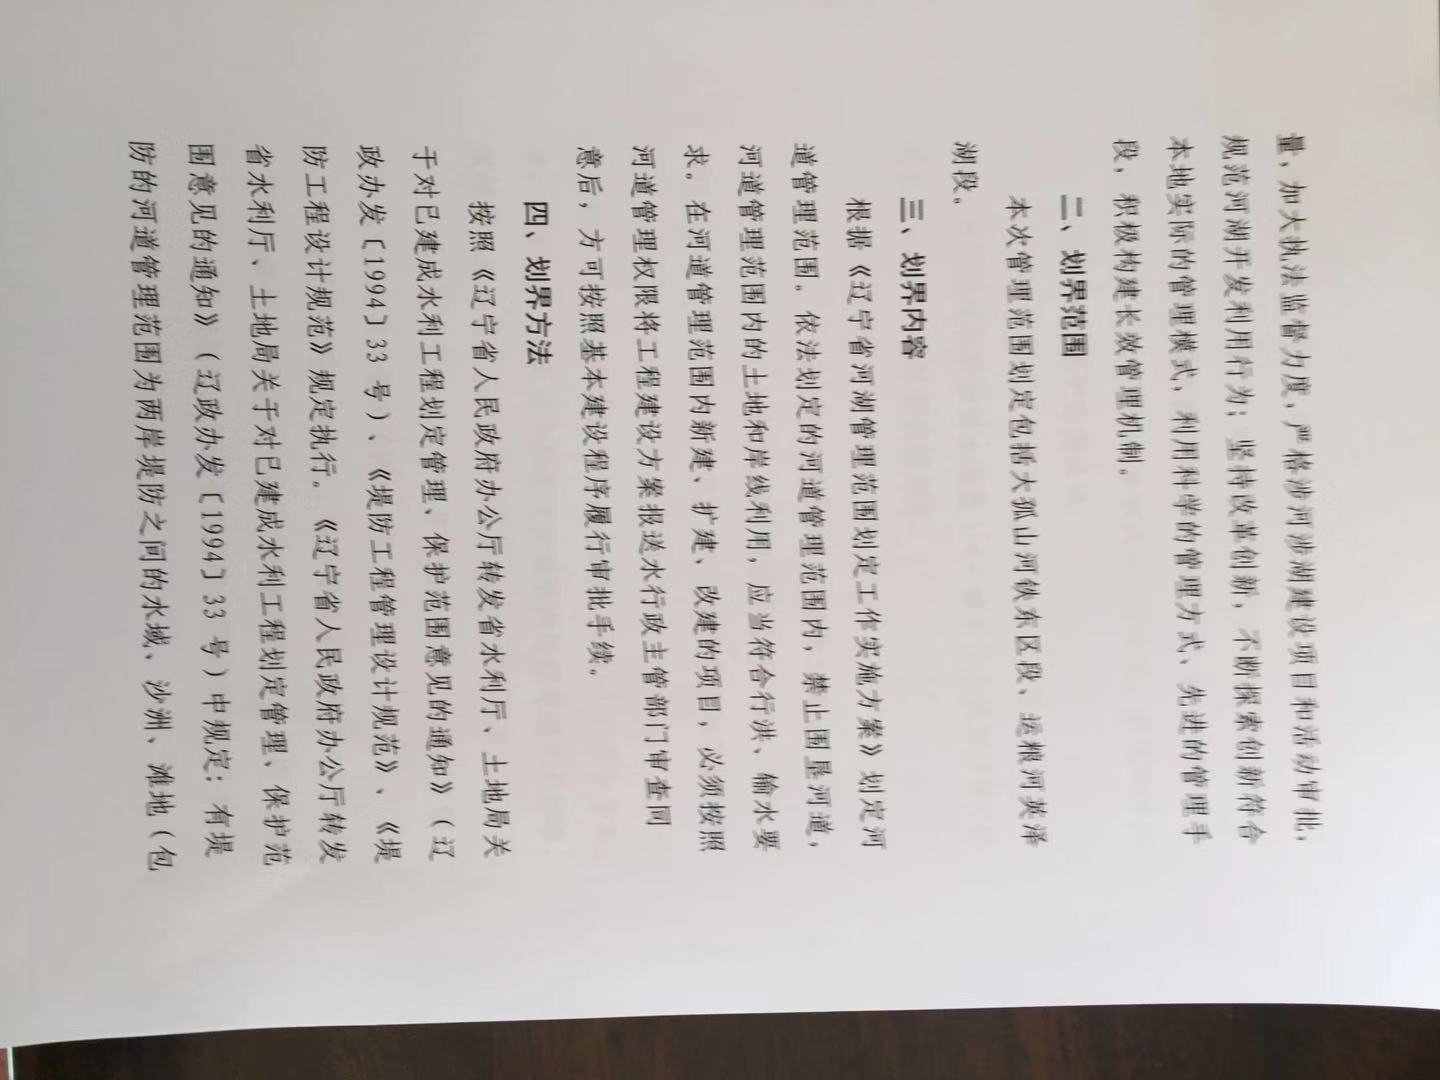 量，加大执法监督力度，严格涉河涉湖建设项目和活动审批，
规范河湖开发利用行为；坚持改革创新，不断探索创新符合
本地实际的管理模式，利用科学的管理方式、先进的管理手
段，积极构建长效管理机制。
二、划界范围
本次管理范围划定包括大孤山河铁东区段、运粮河英泽
湖段。
三、划界内容
根据《辽宁省河湖管理范围划定工作实施方案》划定河
道管理范围。依法划定的河道管理范围内，禁止围垦河道，
河道管理范围内的土地和岸线利用，应当符合行洪、输水要
求。在河道管理范围内新建、扩建、改建的项目，必须按照
河道管理权限将工程建设方案报送水行政主管部门审查同
意后，方可按照基本建设程序履行审批手续。
四、划界方法
按照《辽宁省人民政府办公厅转发省水利厅、土地局关
于对已建成水利工程划定管理、保护范围意见的通知》（辽
政办发〔1994〕33 号）、《堤防工程管理设计规范》、《堤
防工程设计规范》规定执行。《辽宁省人民政府办公厅转发
省水利厅、土地局关于对已建成水利工程划定管理、保护范
围意见的通知》（辽政办发〔1994〕33 号）中规定：有堤
防的河道管理范围为两岸堤防之间的水域、沙洲、滩地（包